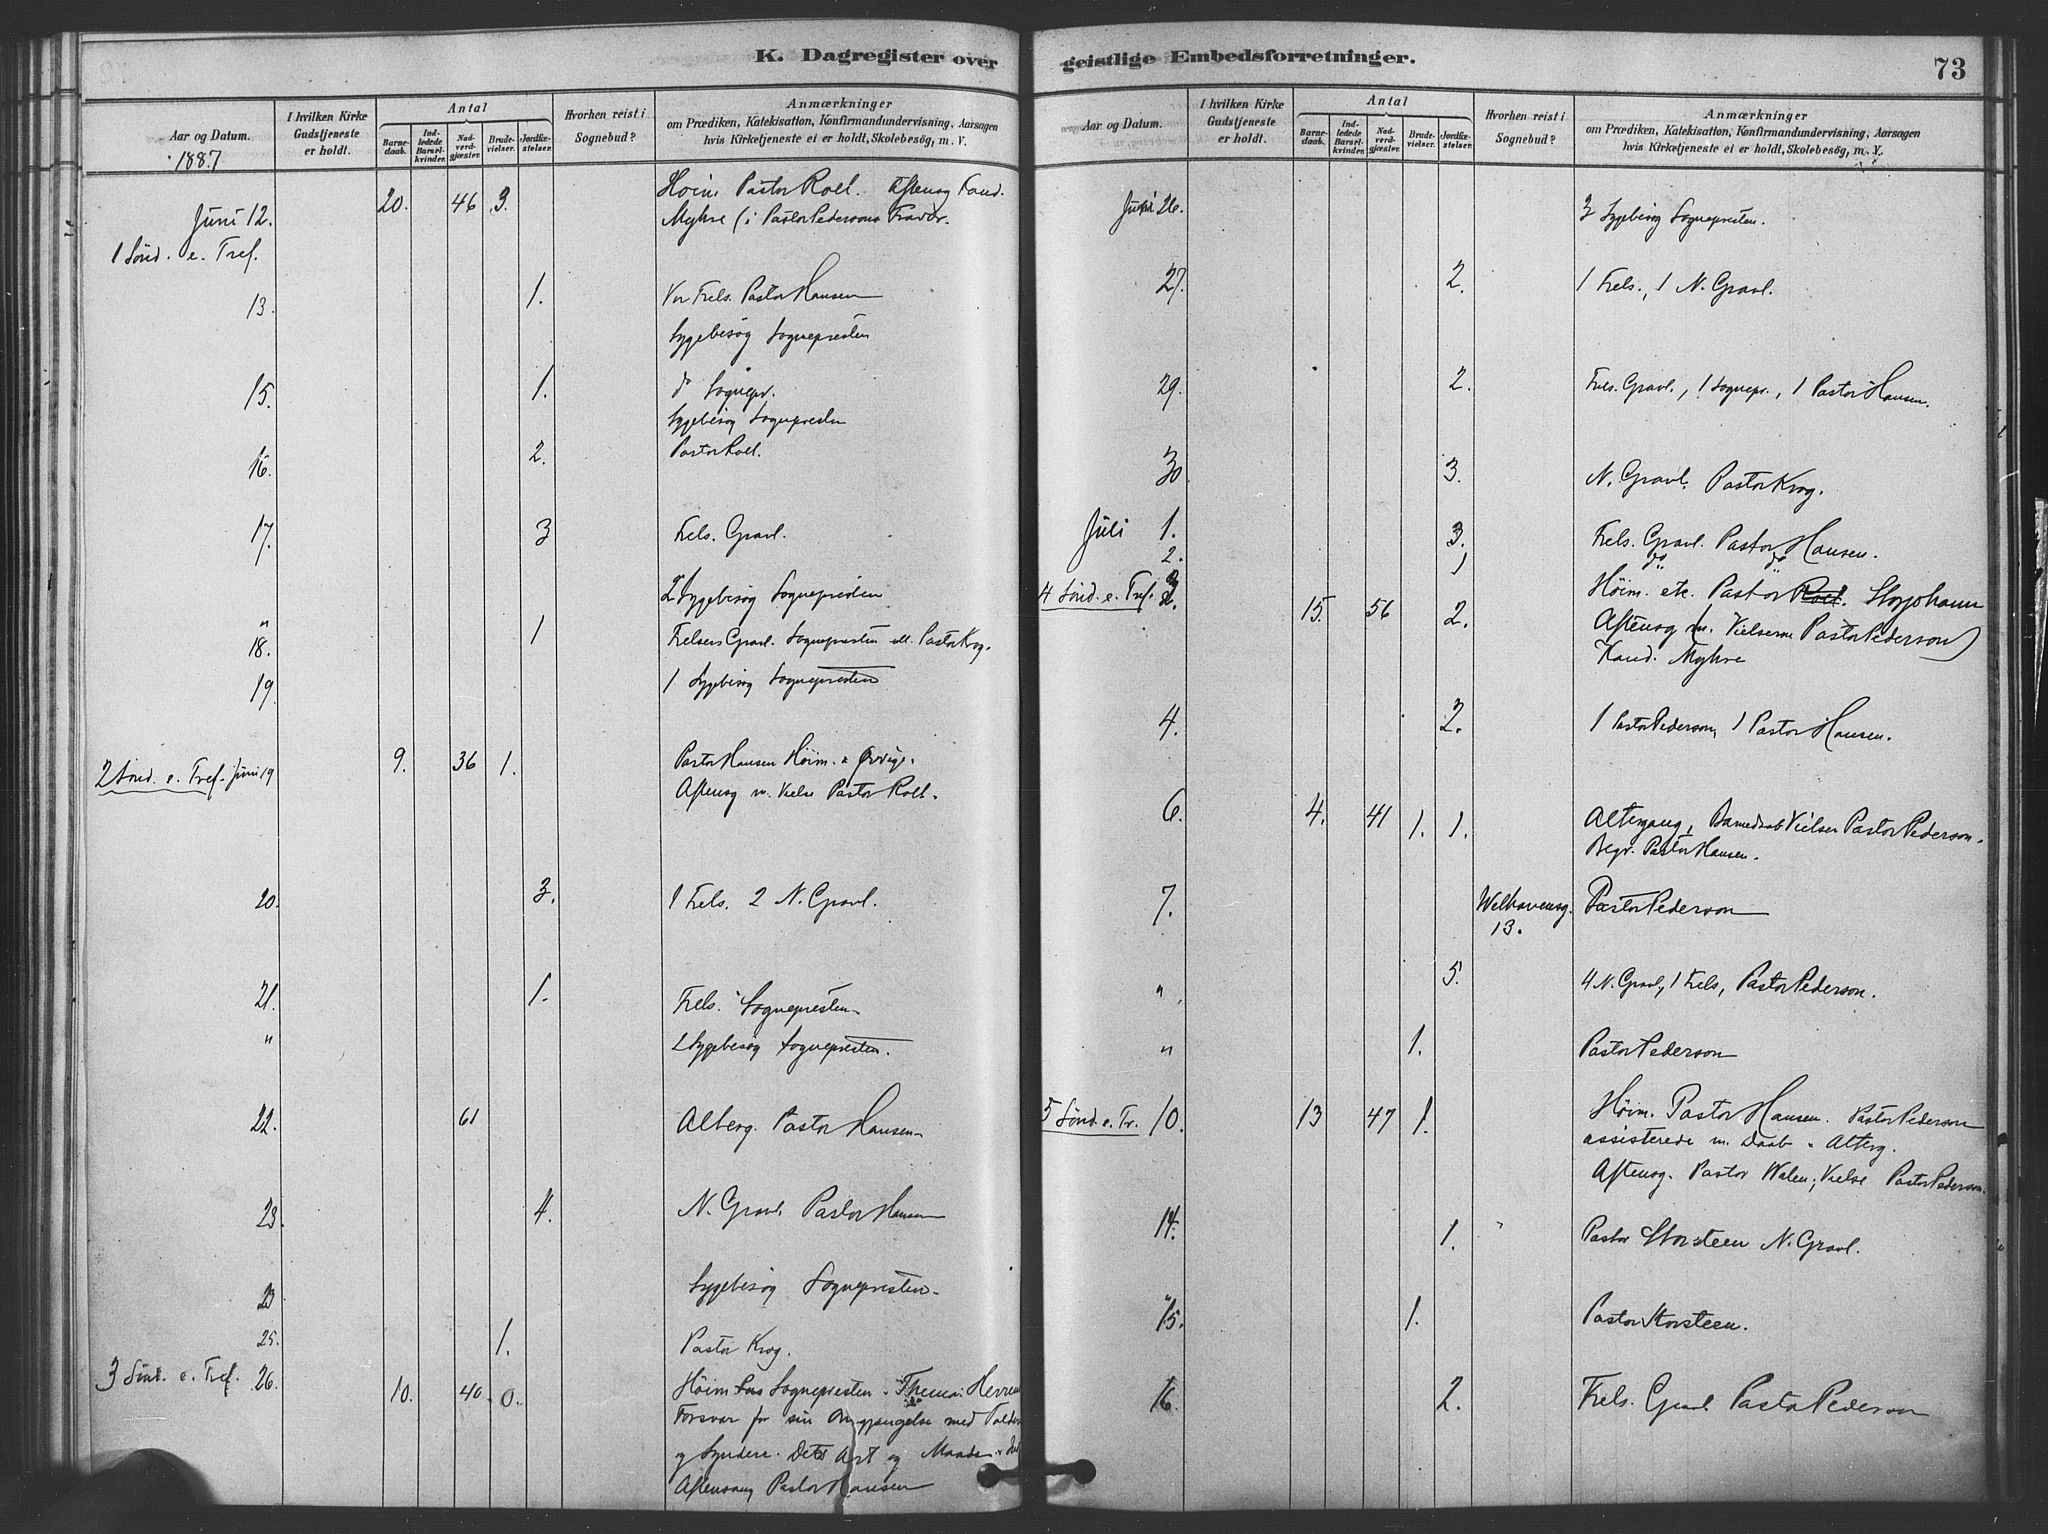 K. Dagregister over
Aar og Datum.
1887
I hvilken Kirke Gudstjeneste er holdt.
Antal
Barnedaab.
Indledede Barselkvinder.
Nadverdgjæster.
Brudevielser.
Jordfæstelser.
Hvorhen reist i Sognebud?
Anmærkninger
om Prædiken, Katekisation, Konfirmandundervisning, Aarsagen
hvis Kirketjeneste ei er holdt, Skolebesög, m. V.
Juni 12. 20. 46 3. Höim Pastor Roll. Aftensg Kand.
1 Sönd. e. Tref. Myhre (i Pastor Pedersons Fravær.
13. 1. Vor Frels. Pastor Hansen
Sygebesög Sognepresten
15. 1. do Sognepr.
Sygebesög Sognepresten
16. 2. Pastor Roll.
17. 3 Frels. Gravl.
2 Sygebesög Sognepresten
" 18. 1 Frelsers Gravl. Sognepresten ell. Pastor Krog.
19 1 Sygebesög Sognepresten
2 Sönd. e. Tref. Juni 19 9. 36 1. Pastor Hansen Höim. & Övrige.
Aftensg m. Vielse Pastor Roll.
20. 3. 1 Frels. 2 N. Gravl.
21. 1. Frels. Sognepresten
" 2 Sygebesög Sognepresten.
22. 61 Alterg. Pastor Hansen
23. 4. N. Gravl. Pastor Hansen
23 Sygebesög Sognepresten.
25. 1. Pastor Krog.
3 Sönd. e. Tref. 26. 10. 40. 0. Höim Sognepresten. Thema: Herrens
Forsvar for sin Omgjængelse med Tolder
og Syndere. Dets Art og Maade
Aftensang Pastor Hansen
geistlige Embedsforretninger.
73
Aar og Datum.
I hvilken Kirke Gudstjeneste er holdt.
Antal
Barnedaab.
Indledede Barselkvinder.
Nadverdgjæster.
Brudevielser.
Jordfæstelser.
Hvorhen reist i Sognebud?
Anmærkninger
om Prædiken, Katekisation, Konfirmandundervisning, Aarsagen
hvis Kirketjeneste ei er holdt, Skolebesög, m. V.
Juni 26. 3 Sygebesög Sognepresten.
27. 2. 1 Frels., 1 N. Gravl.
29. 2. Frels. Gravl., 1 Sognepr., 1 Pastor Hansen.
30 3. N. Gravl. Pastor Krog.
Juli 1. 3. Frels. Gravl. Pastor Hansen.
2. 1 do do
4 Sönd. e. Tref. 3. 15. 56 2. Höim. etc. Pastor Roll. Storjohann
Aftensg (m. Vielserne Pastor Pederson)
Kand. Myhre
4. 2. 1 Pastor Pederson, 1 Pastor Hansen.
6. 4. 41 1. 1. Altergang, Barnedaab Vielser Pastor Pederson.
Begr. Pastor Hansen.
7. Welhavensg. Pastor Pederson
13.
" 5. 4 N. Gravl., 1 Frels, Pastor Pederson.
" 1. Pastor Pederson
5 Sönd. e. Tr. 10. 13 47 1. Höim. Pastor Hansen. Pastor Pederson
assisterede m. Daab & Alterg.
Aftensg. Pastor Walen, Vielse Pastor Pederson.
14. 1. Pastor Storsteen N. Gravl.
15. 1. Pastor Storsteen.
16. 2. Frels. Gravl Pastor Pederson